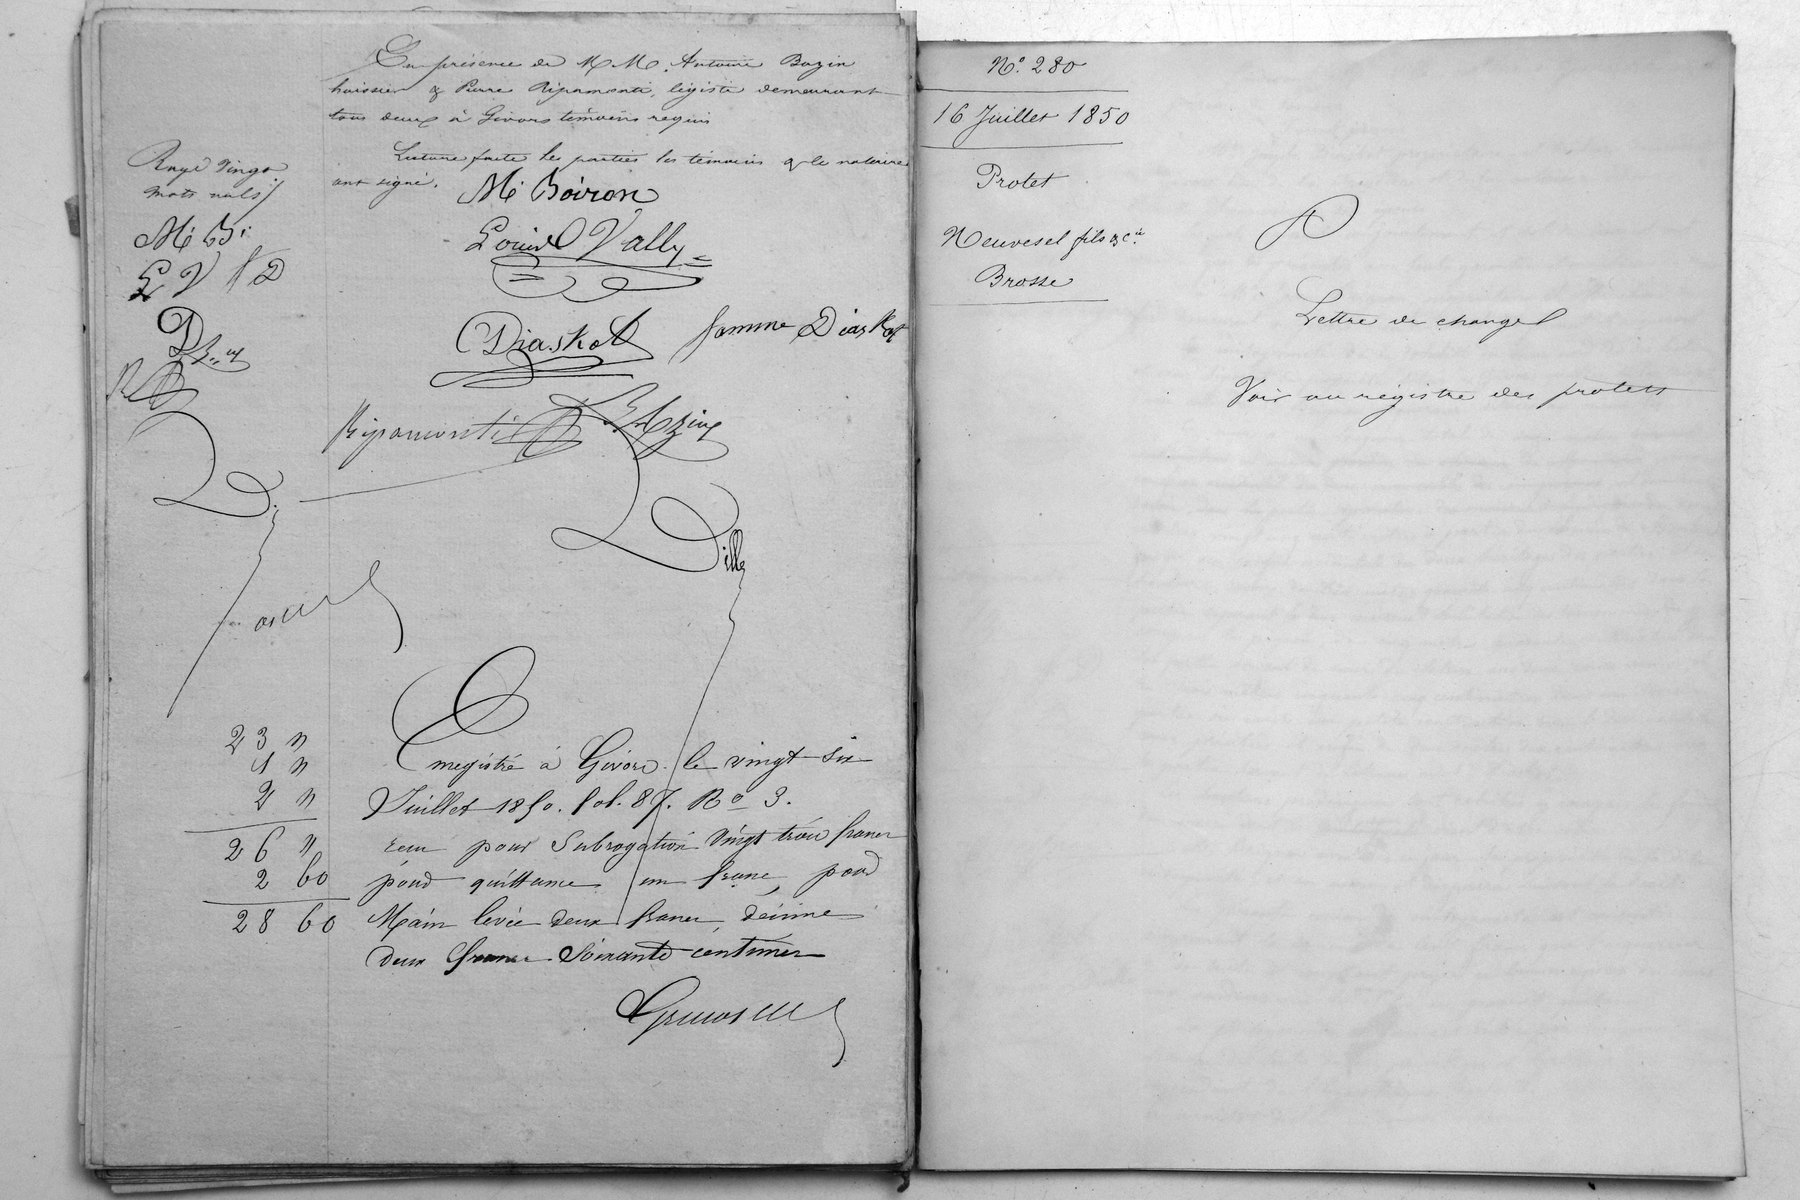 En présence de M M. Antoine Bazin
huissier & Pierre Ripamonti, légiste demeurant
tous deux à Givors témoins requis
Lecture faite les parties les témoins & le notaire
ont signé.
Rayé vingt
mots nuls
M. B.
L V f D
D
M. Boiron
Louis Vally
Diaskot femme Diaskot
Ripamonti Bazin
Dille
23 "
1 "
2 "
26 "
2 60
28 60
Enregistré à Givors le vingt six
Juillet 1850. fol. 87. Ro 3.
reçu pour Subrogation Vingt trois francs
pour quittance un franc, pour
Main levée deux francs, décime
deux francs Soixante centimes
No. 280
16 Juillet 1850
Protet
Neuvesel fils & Cie.
Brosse
P
Lettre de change
Voir au régistre des protets